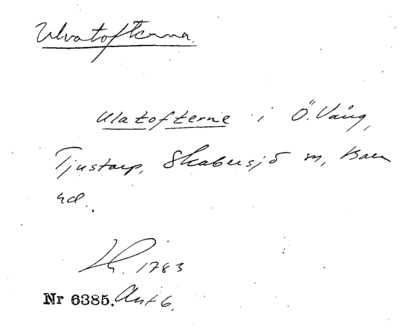 Ulvatofterna.
Ulatofterne i Ö. Vång,
Tjustorp, Skabersjö sn, Bara
hd.
Lk. 1783
Nr 6385. Akt 6.